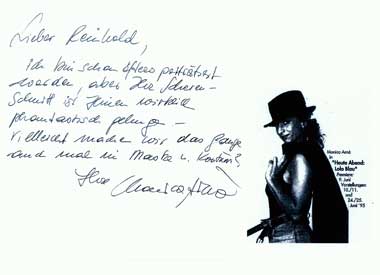 Lieber Reinhold,
ich bin schon öfters porträtiert
worden, aber Ihr Scheren-
schnitt ist Ihnen wirklich
phantastisch gelungen -
vielleicht machen wir das Ganze
auch mal in Maske u. Kostüm?
Ihre Monica Arnó
Monica Arnó
in
"Heute Abend:
Lola Blau"
Premiere:
9. Juni
Vorstellungen:
10./11.
und
24./25.
Juni '95